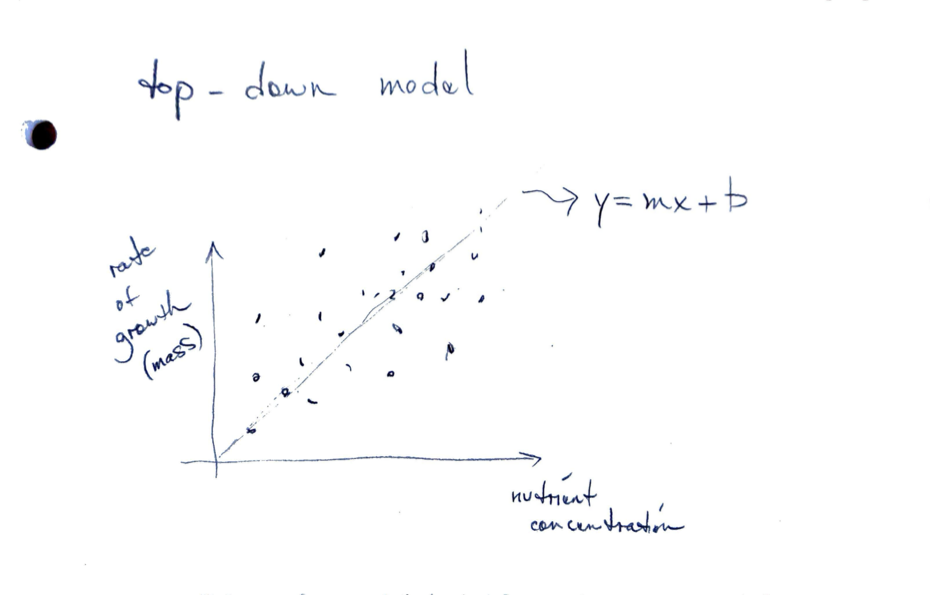 top-down model
y=mx+b
rate
of
growth
(mass)
nutrient
concentration